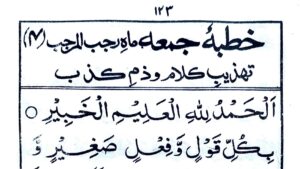 ۱۲۳
خطبۂ جمعہ ماہ رجب المرجب (۴)
تہذیبِ کلام و ذمِ کذب
اَلْحَمْدُ لِلّٰهِ الْعَلِيْمِ الْخَبِيْرِ ○
بِكُلِّ قَوْلٍ وَّفِعْلٍ صَغِيْرٍ وَّ